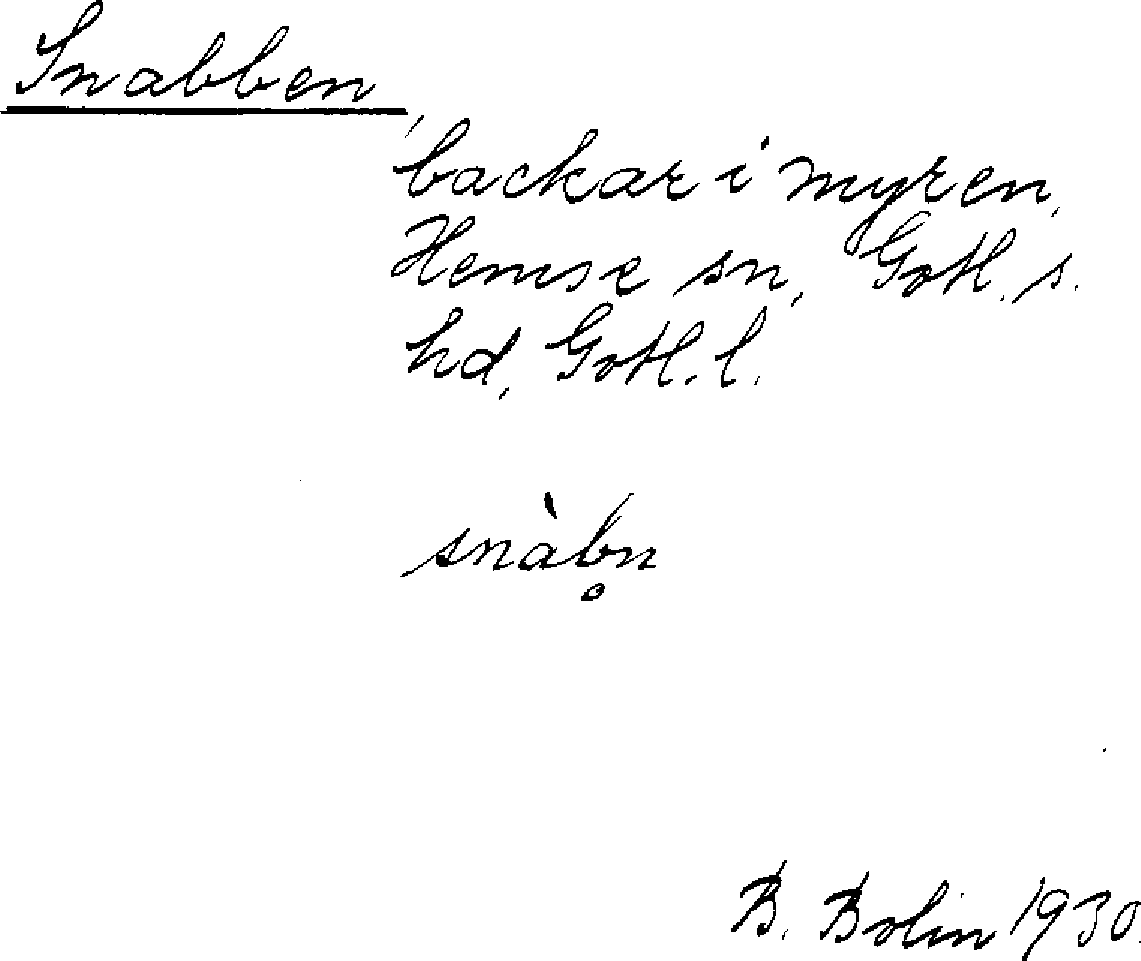 Snabben,
backar i myren,
Hemse sn, Gotl. s.
hd, Gotl. l.
snàbn̥
B. Bolin 1930.